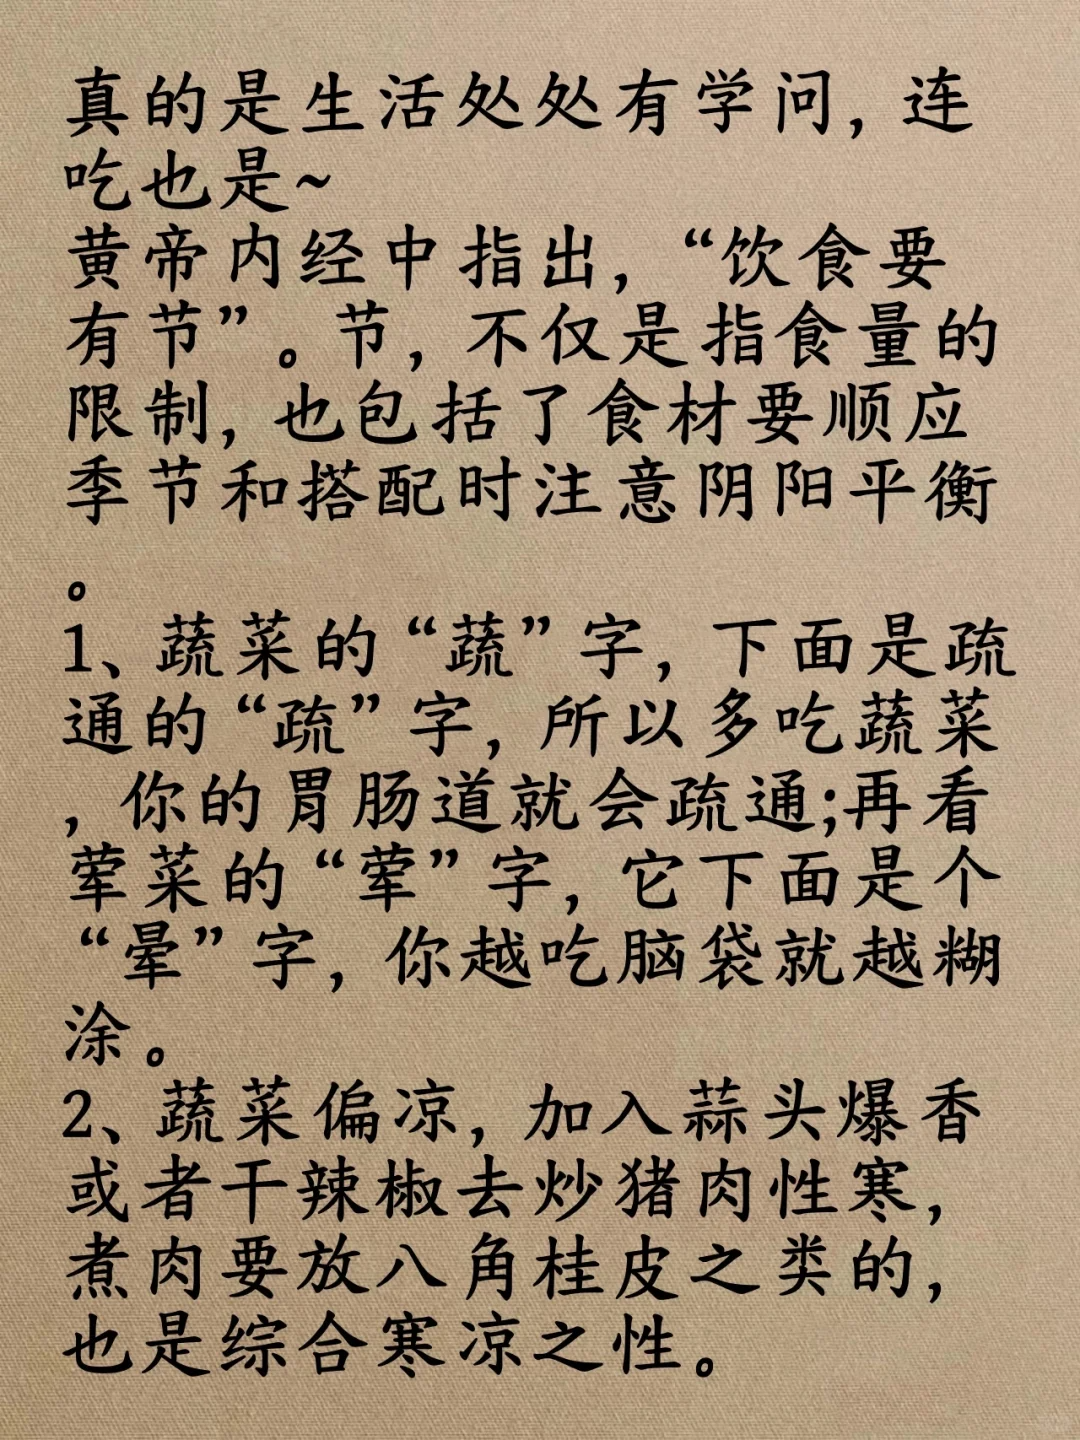 真的是生活处处有学问，连
吃也是~
黄帝内经中指出，“饮食要
有节”。节，不仅是指食量的
限制，也包括了食材要顺应
季节和搭配时注意阴阳平衡
。
1、蔬菜的“蔬”字，下面是疏
通的“疏”字，所以多吃蔬菜
，你的胃肠道就会疏通;再看
荤菜的“荤”字，它下面是个
“晕”字，你越吃脑袋就越糊
涂。
2、蔬菜偏凉，加入蒜头爆香
或者干辣椒去炒猪肉性寒，
煮肉要放八角桂皮之类的，
也是综合寒凉之性。